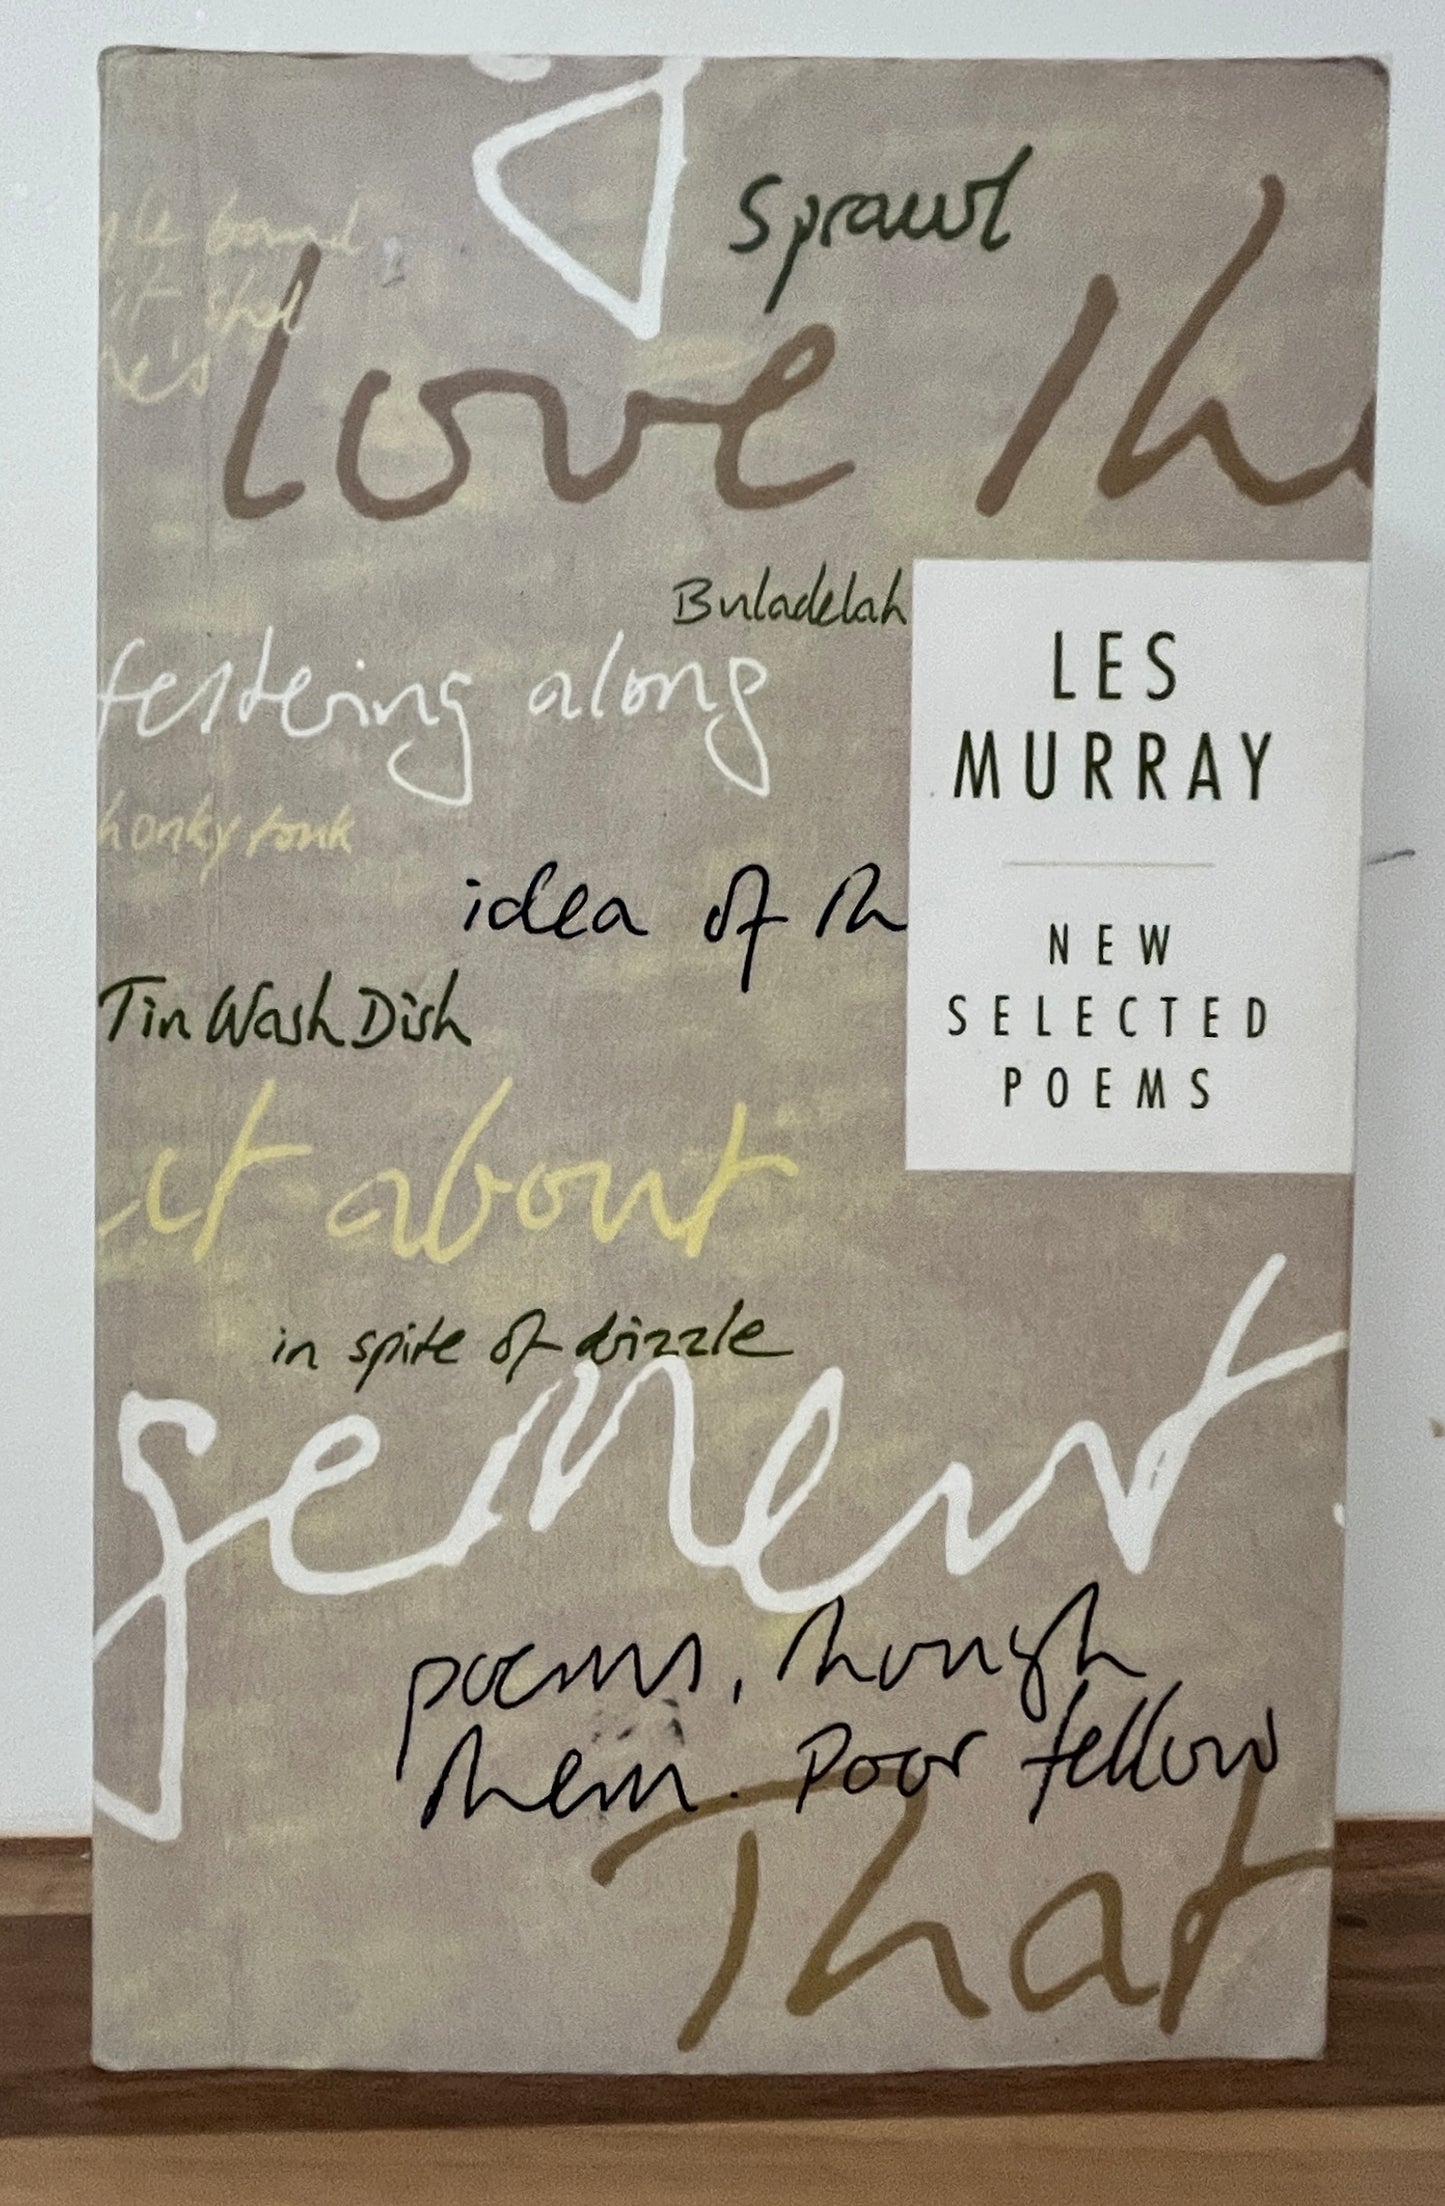 Sprawl
bound
it shal
he's
love the
Buladelah
festering along
LES
MURRAY
honky tonk
idea of th
NEW
SELECTED
POEMS
Tin Wash Dish
it about
in spite of drizzle
gement
poems, though
them. Poor fellow
That